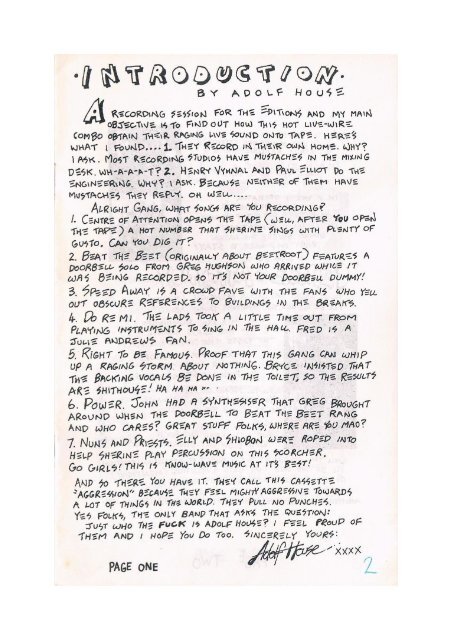 ·INTRODUCTION·
BY ADOLF HOUSE
A RECORDING SESSION FOR THE EDITIONS AND MY MAIN
OBJECTIVE IS TO FIND OUT HOW THIS HOT LIVE-WIRE
COMBO OBTAIN THEIR RAGING LIVE SOUND ONTO TAPE. HERE'S
WHAT I FOUND.... 1. THEY RECORD IN THEIR OWN HOME. WHY?
I ASK. MOST RECORDING STUDIOS HAVE MUSTACHES IN THE MIXING
DESK. WH-A-A-A-T? 2. HENRY VYHNAL AND PAUL ELLIOT DO THE
ENGINEERING. WHY? I ASK. BECAUSE NEITHER OF THEM HAVE
MUSTACHES THEY REPLY. OH WELL.....
ALRIGHT GANG, WHAT SONGS ARE YOU RECORDING?
1. CENTRE OF ATTENTION OPENS THE TAPE (WELL, AFTER YOU OPEN
THE TAPE) A HOT NUMBER THAT SHERINE SINGS WITH PLENTY OF
GUSTO. CAN YOU DIG IT?
2. BEAT THE BEET (ORIGINALLY ABOUT BEETROOT) FEATURES A
DOORBELL SOLO FROM GREG HUGHSON WHO ARRIVED WHILE IT
WAS BEING RECORDED. SO IT'S NOT YOUR DOORBELL DUMMY!
3. SPEED AWAY IS A CROWD FAVE WITH THE FANS WHO YELL
OUT OBSCURE REFERENCES TO BUILDINGS IN THE BREAKS.
4. DO RE MI. THE LADS TOOK A LITTLE TIME OUT FROM
PLAYING INSTRUMENTS TO SING IN THE HALL. FRED IS A
JULIE ANDREWS FAN.
5. RIGHT TO BE FAMOUS. PROOF THAT THIS GANG CAN WHIP
UP A RAGING STORM ABOUT NOTHING. BRYCE INSISTED THAT
THE BACKING VOCALS BE DONE IN THE TOILET, SO THE RESULTS
ARE SHITHOUSE! HA HA HA
6. POWER. JOHN HAD A SYNTHESISER THAT GREG BROUGHT
AROUND WHEN THE DOORBELL TO BEAT THE BEET RANG
AND WHO CARES? GREAT STUFF FOLKS, WHERE ARE YOU MAO?
7. NUNS AND PRIESTS. ELLY AND SHIOBON WERE ROPED INTO
HELP SHERINE PLAY PERCUSSION ON THIS SCORCHER.
GO GIRLS! THIS IS KNOW-WAVE MUSIC AT IT'S BEST!
AND SO THERE YOU HAVE IT. THEY CALL THIS CASSETTE
"AGGRESSION" BECAUSE THEY FEEL MIGHTY AGGRESSIVE TOWARDS
A LOT OF THINGS IN THE WORLD. THEY PULL NO PUNCHES.
YES FOLKS, THE ONLY BAND THAT ASKS THE QUESTION:
JUST WHO THE FUCK IS ADOLF HOUSE? I FEEL PROUD OF
THEM AND I HOPE YOU DO TOO. SINCERELY YOURS:
Adolf House xxxx
PAGE ONE
2